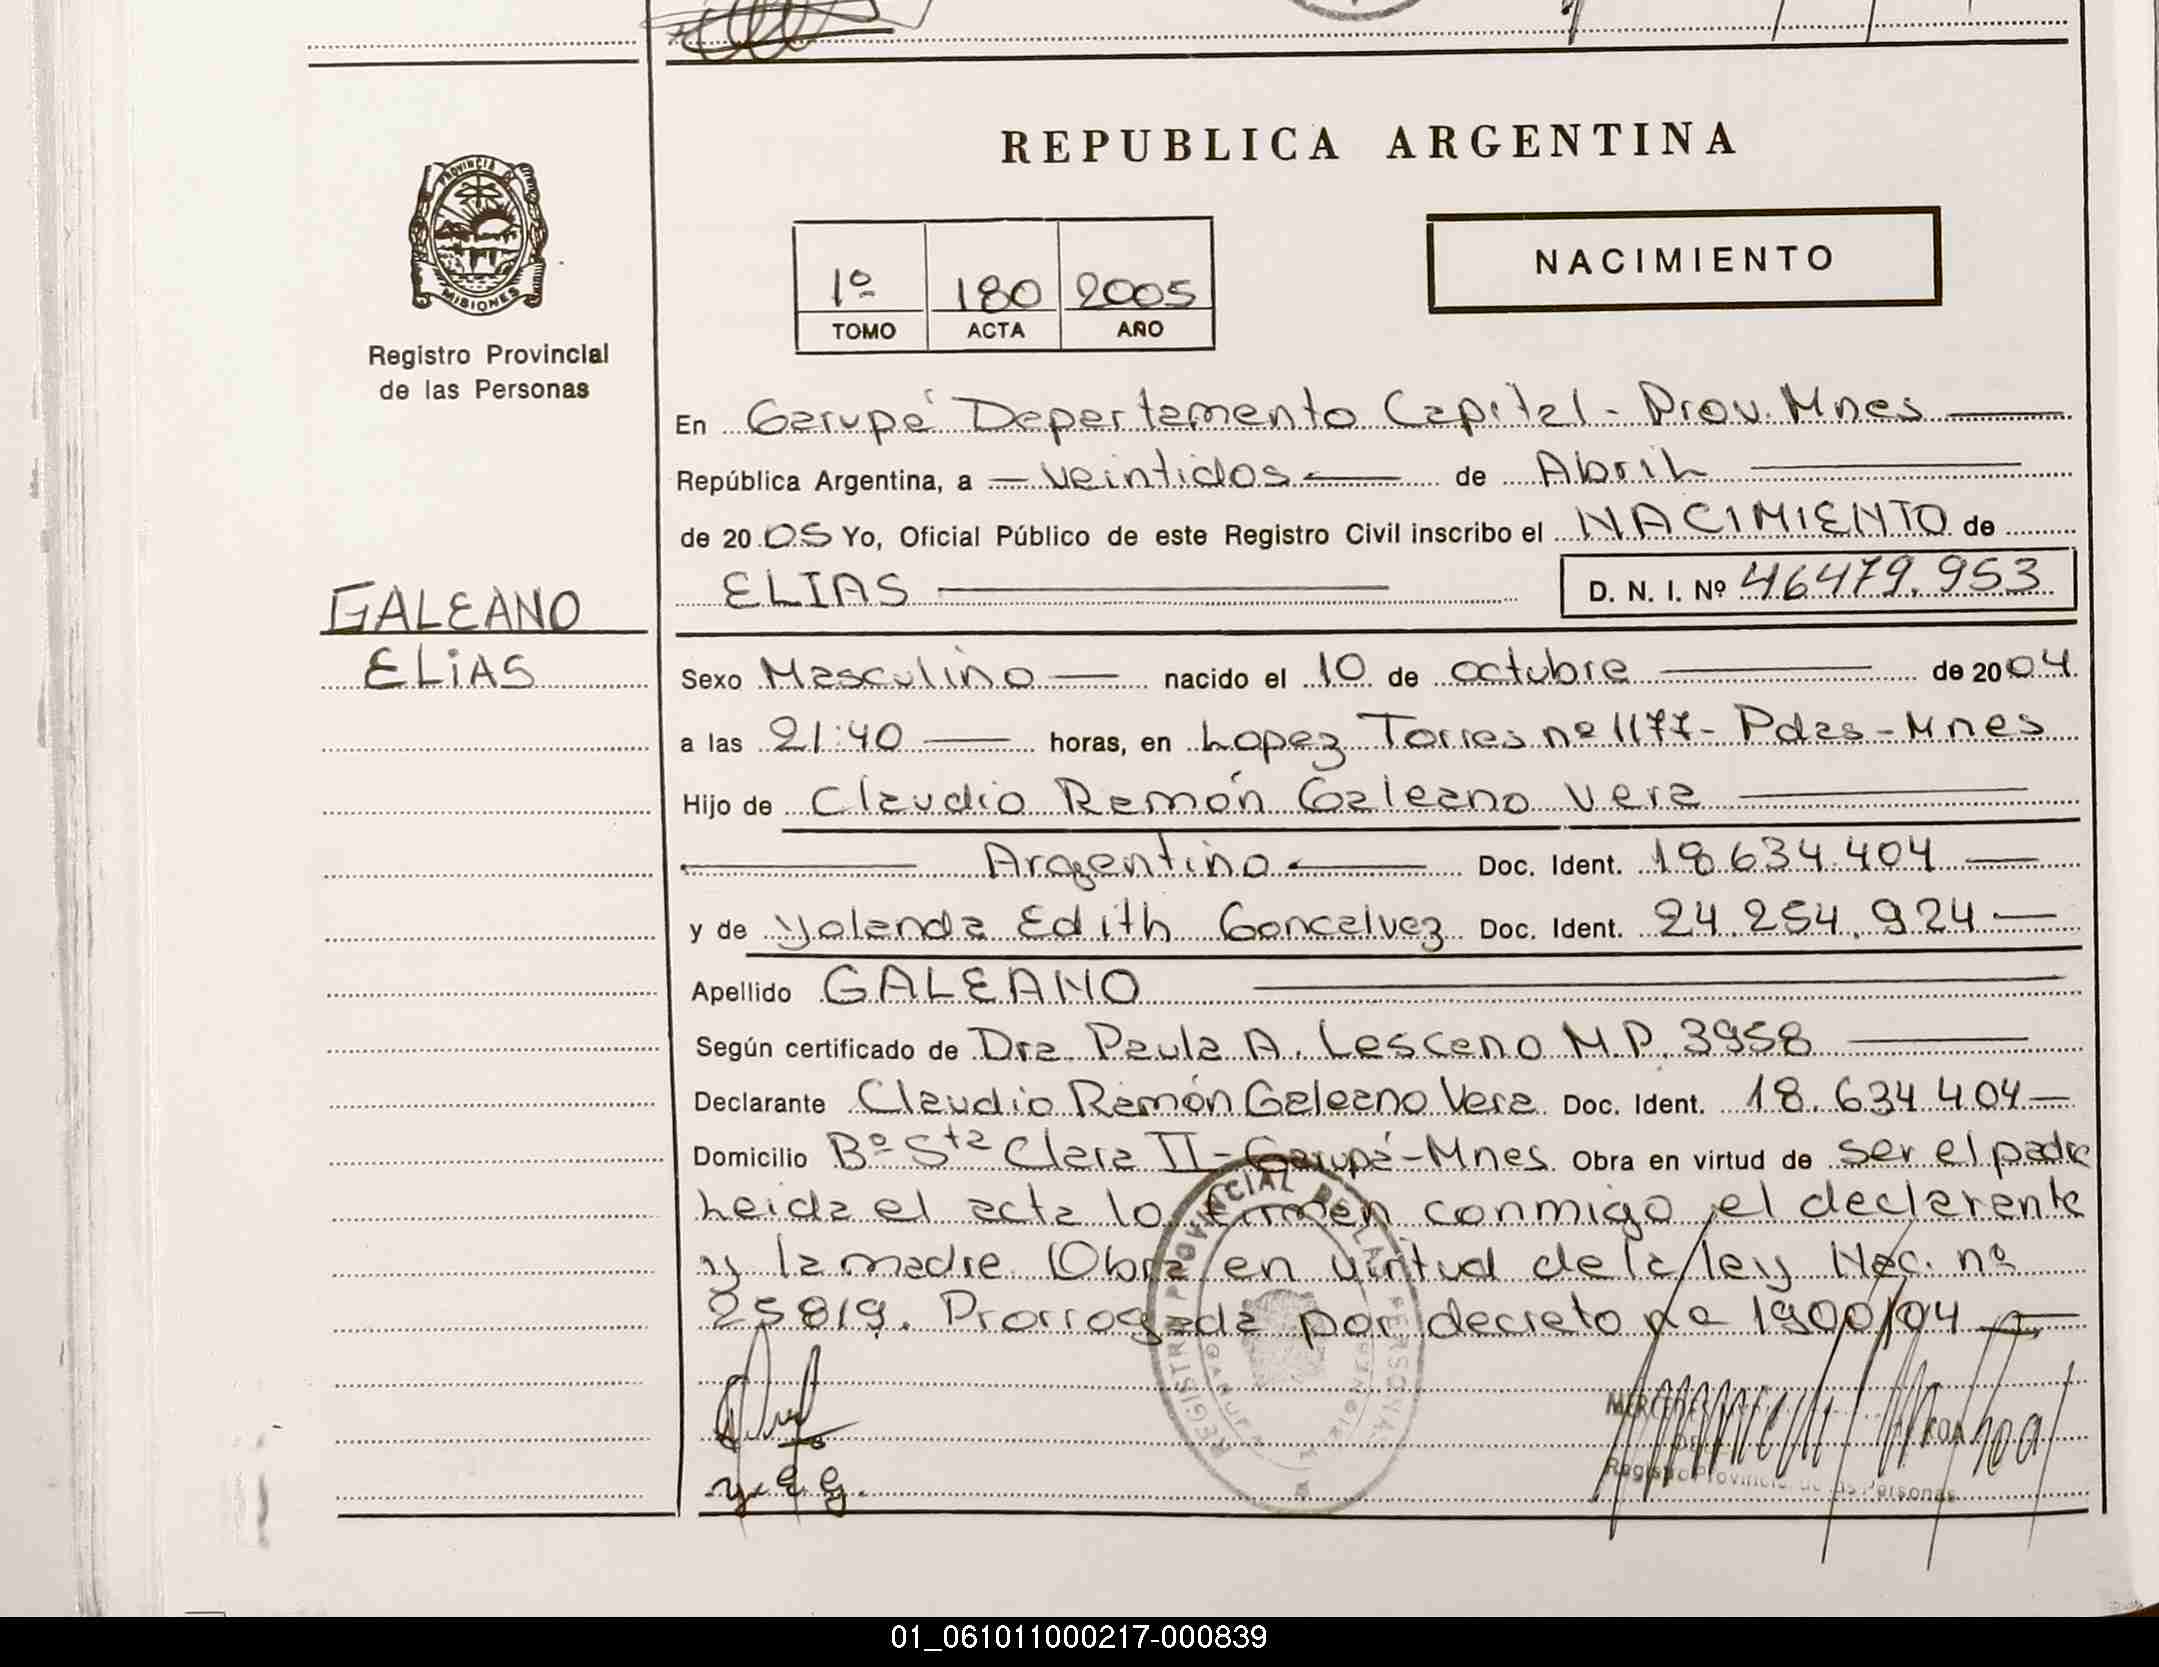 REPUBLICA ARGENTINA
PROVINCIA DE MISIONES
Registro Provincial
de las Personas
1º 180 2005
TOMO ACTA AÑO
NACIMIENTO
En Garupá Departamento Capital - Prov. Mnes
República Argentina, a veintidos de Abril
de 2005 Yo, Oficial Público de este Registro Civil inscribo el NACIMIENTO de
ELIAS D. N. I. Nº 46479.953
GALEANO
ELIAS
Sexo Masculino nacido el 10 de octubre de 2004
a las 21:40 horas, en Lopez Torres nº 1177 - Pdas - Mnes
Hijo de Claudio Ramón Galeano Vera
Argentino Doc. Ident. 18.634.404
y de Yolanda Edith Goncalvez Doc. Ident. 24.254.924
Apellido GALEANO
Según certificado de Dra. Paula A. Lescano M.P. 3958
Declarante Claudio Ramón Galeano Vera Doc. Ident. 18.634.404
Domicilio Bº Sta Clara II - Garupá - Mnes Obra en virtud de ser el padre
Leida el acta lo firman conmigo el declarante
y la madre. Obra en virtud de la ley Nac. nº
25819. Prorrogada por decreto nº 1900/04
REGISTRO PROVINCIAL DE LAS PERSONAS
Y. E. G.
MERCEDES ROA
Registro Provincial de las Personas
01_061011000217-000839